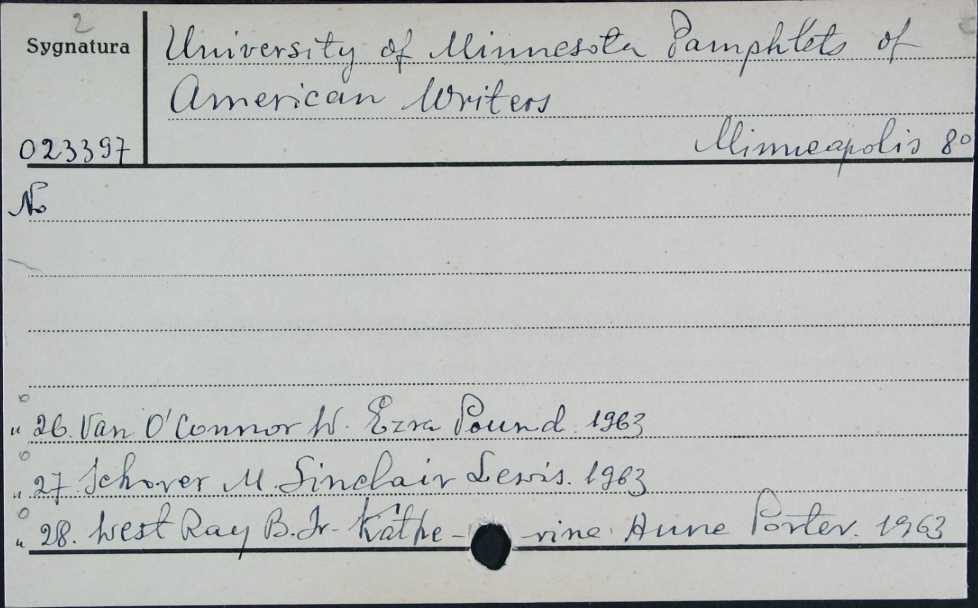 2
Sygnatura
University of Minnesota Pamphlets of
American Writers
023397
Minneapolis 8°
No
" 26. Van O'Connor W. Ezra Pound. 1963
" 27 Schorer M. Sinclair Lewis. 1963
" 28. West Ray B. Jr. Kathe - rine Anne Porter. 1963